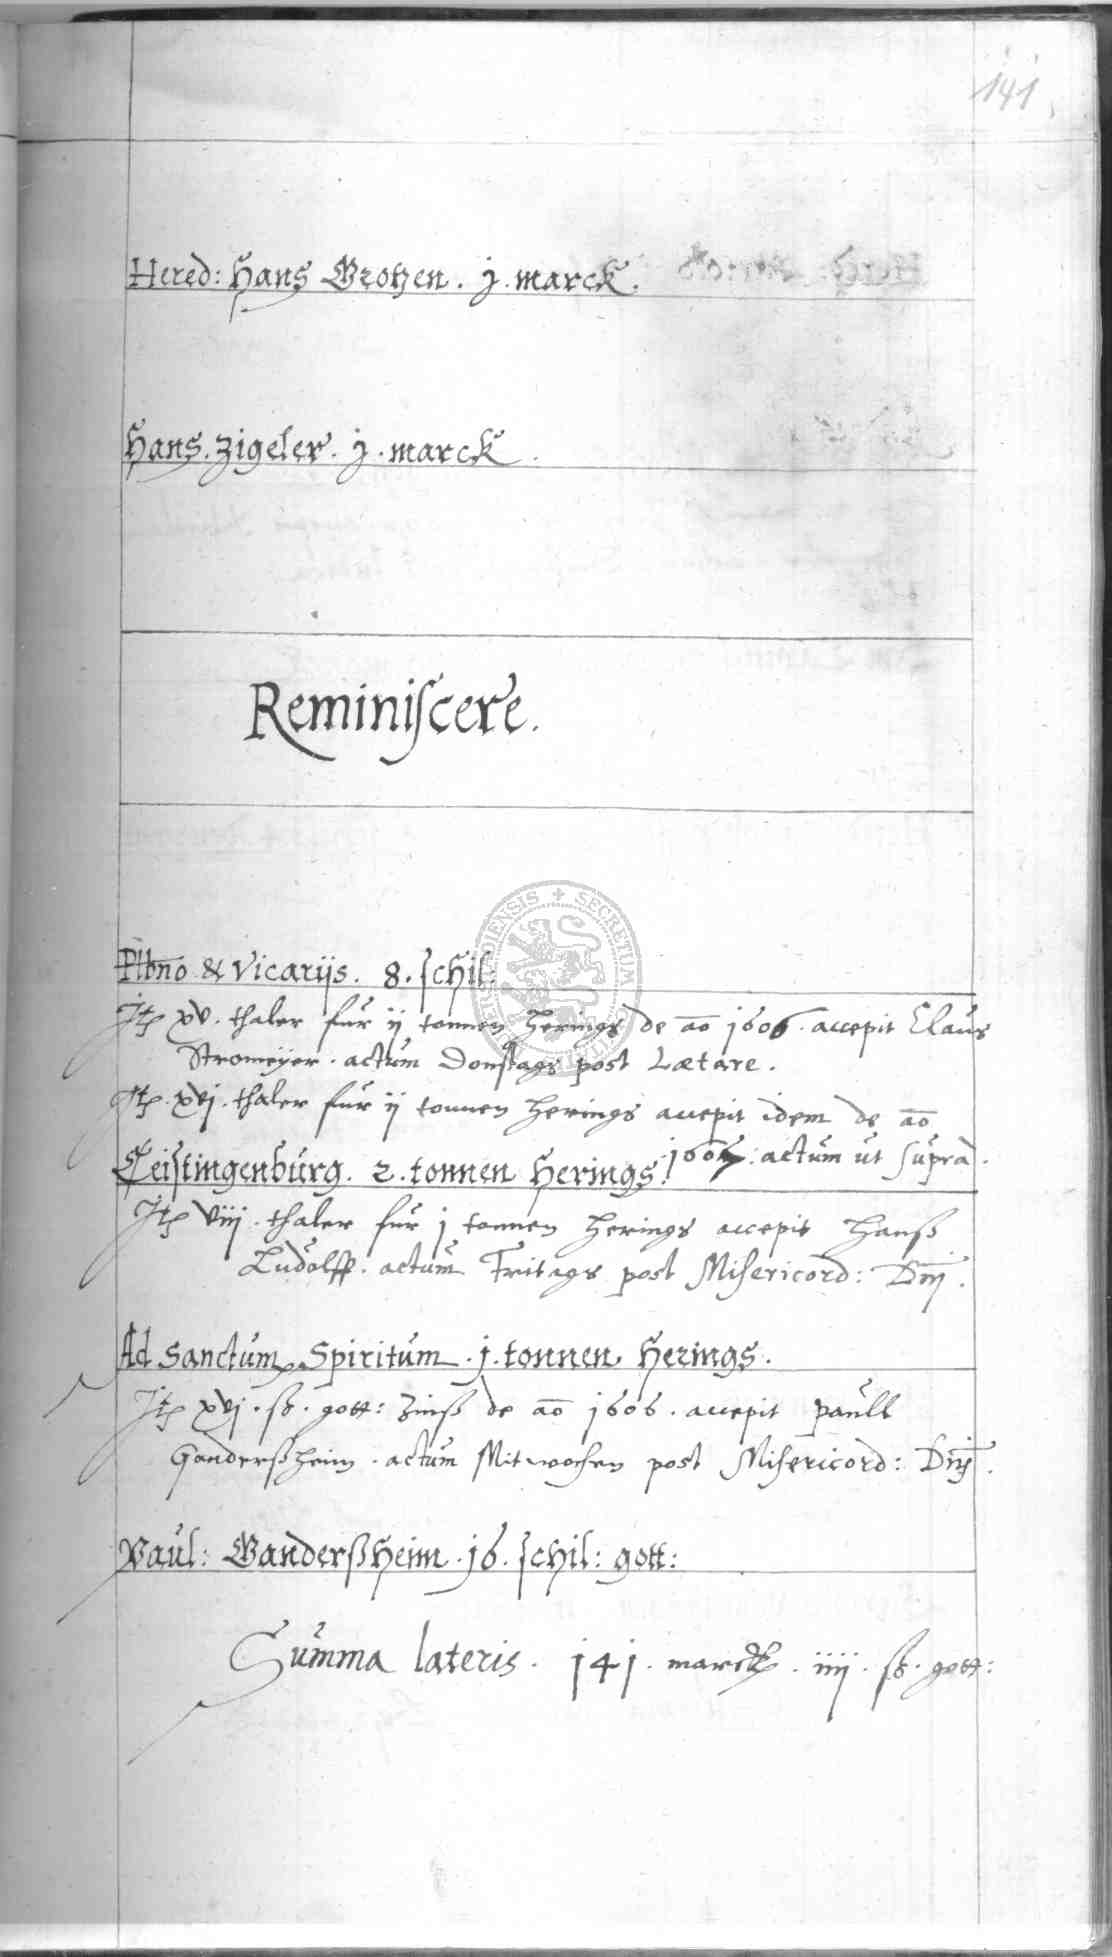 141
Hered: Hans Grohen. j. marck.
Hans. Zigeler. j. marck.
Reminiscere.
Plbno & Vicarijs. 8. schil:
Jtem xv. thaler für ij tonnen herings de ao 1606. accepit Claus
Stromeyer. actum Donstags post Lætare.
Jtem xvj. thaler für ij tonnen herings accepit idem de ao
1607. actum ut supra.
Leistingenburg. 2. tonnen Herings.
Jtem viij. thaler für j tonnen herings accepit Hanß
Ludolff. actum Fritags post Misericord: Dnj.
Ad Sanctum Spiritum. j. tonnen Herings.
Jtem xvj. ß. gott: Zinß de ao 1606. accepit Paull
Ganderßheim. actum Mitwochen post Misericord: Dnj.
Paul: Ganderßheim. 16. schil: gott:
Summa lateris. 141. marck. iiij. ß. gott: